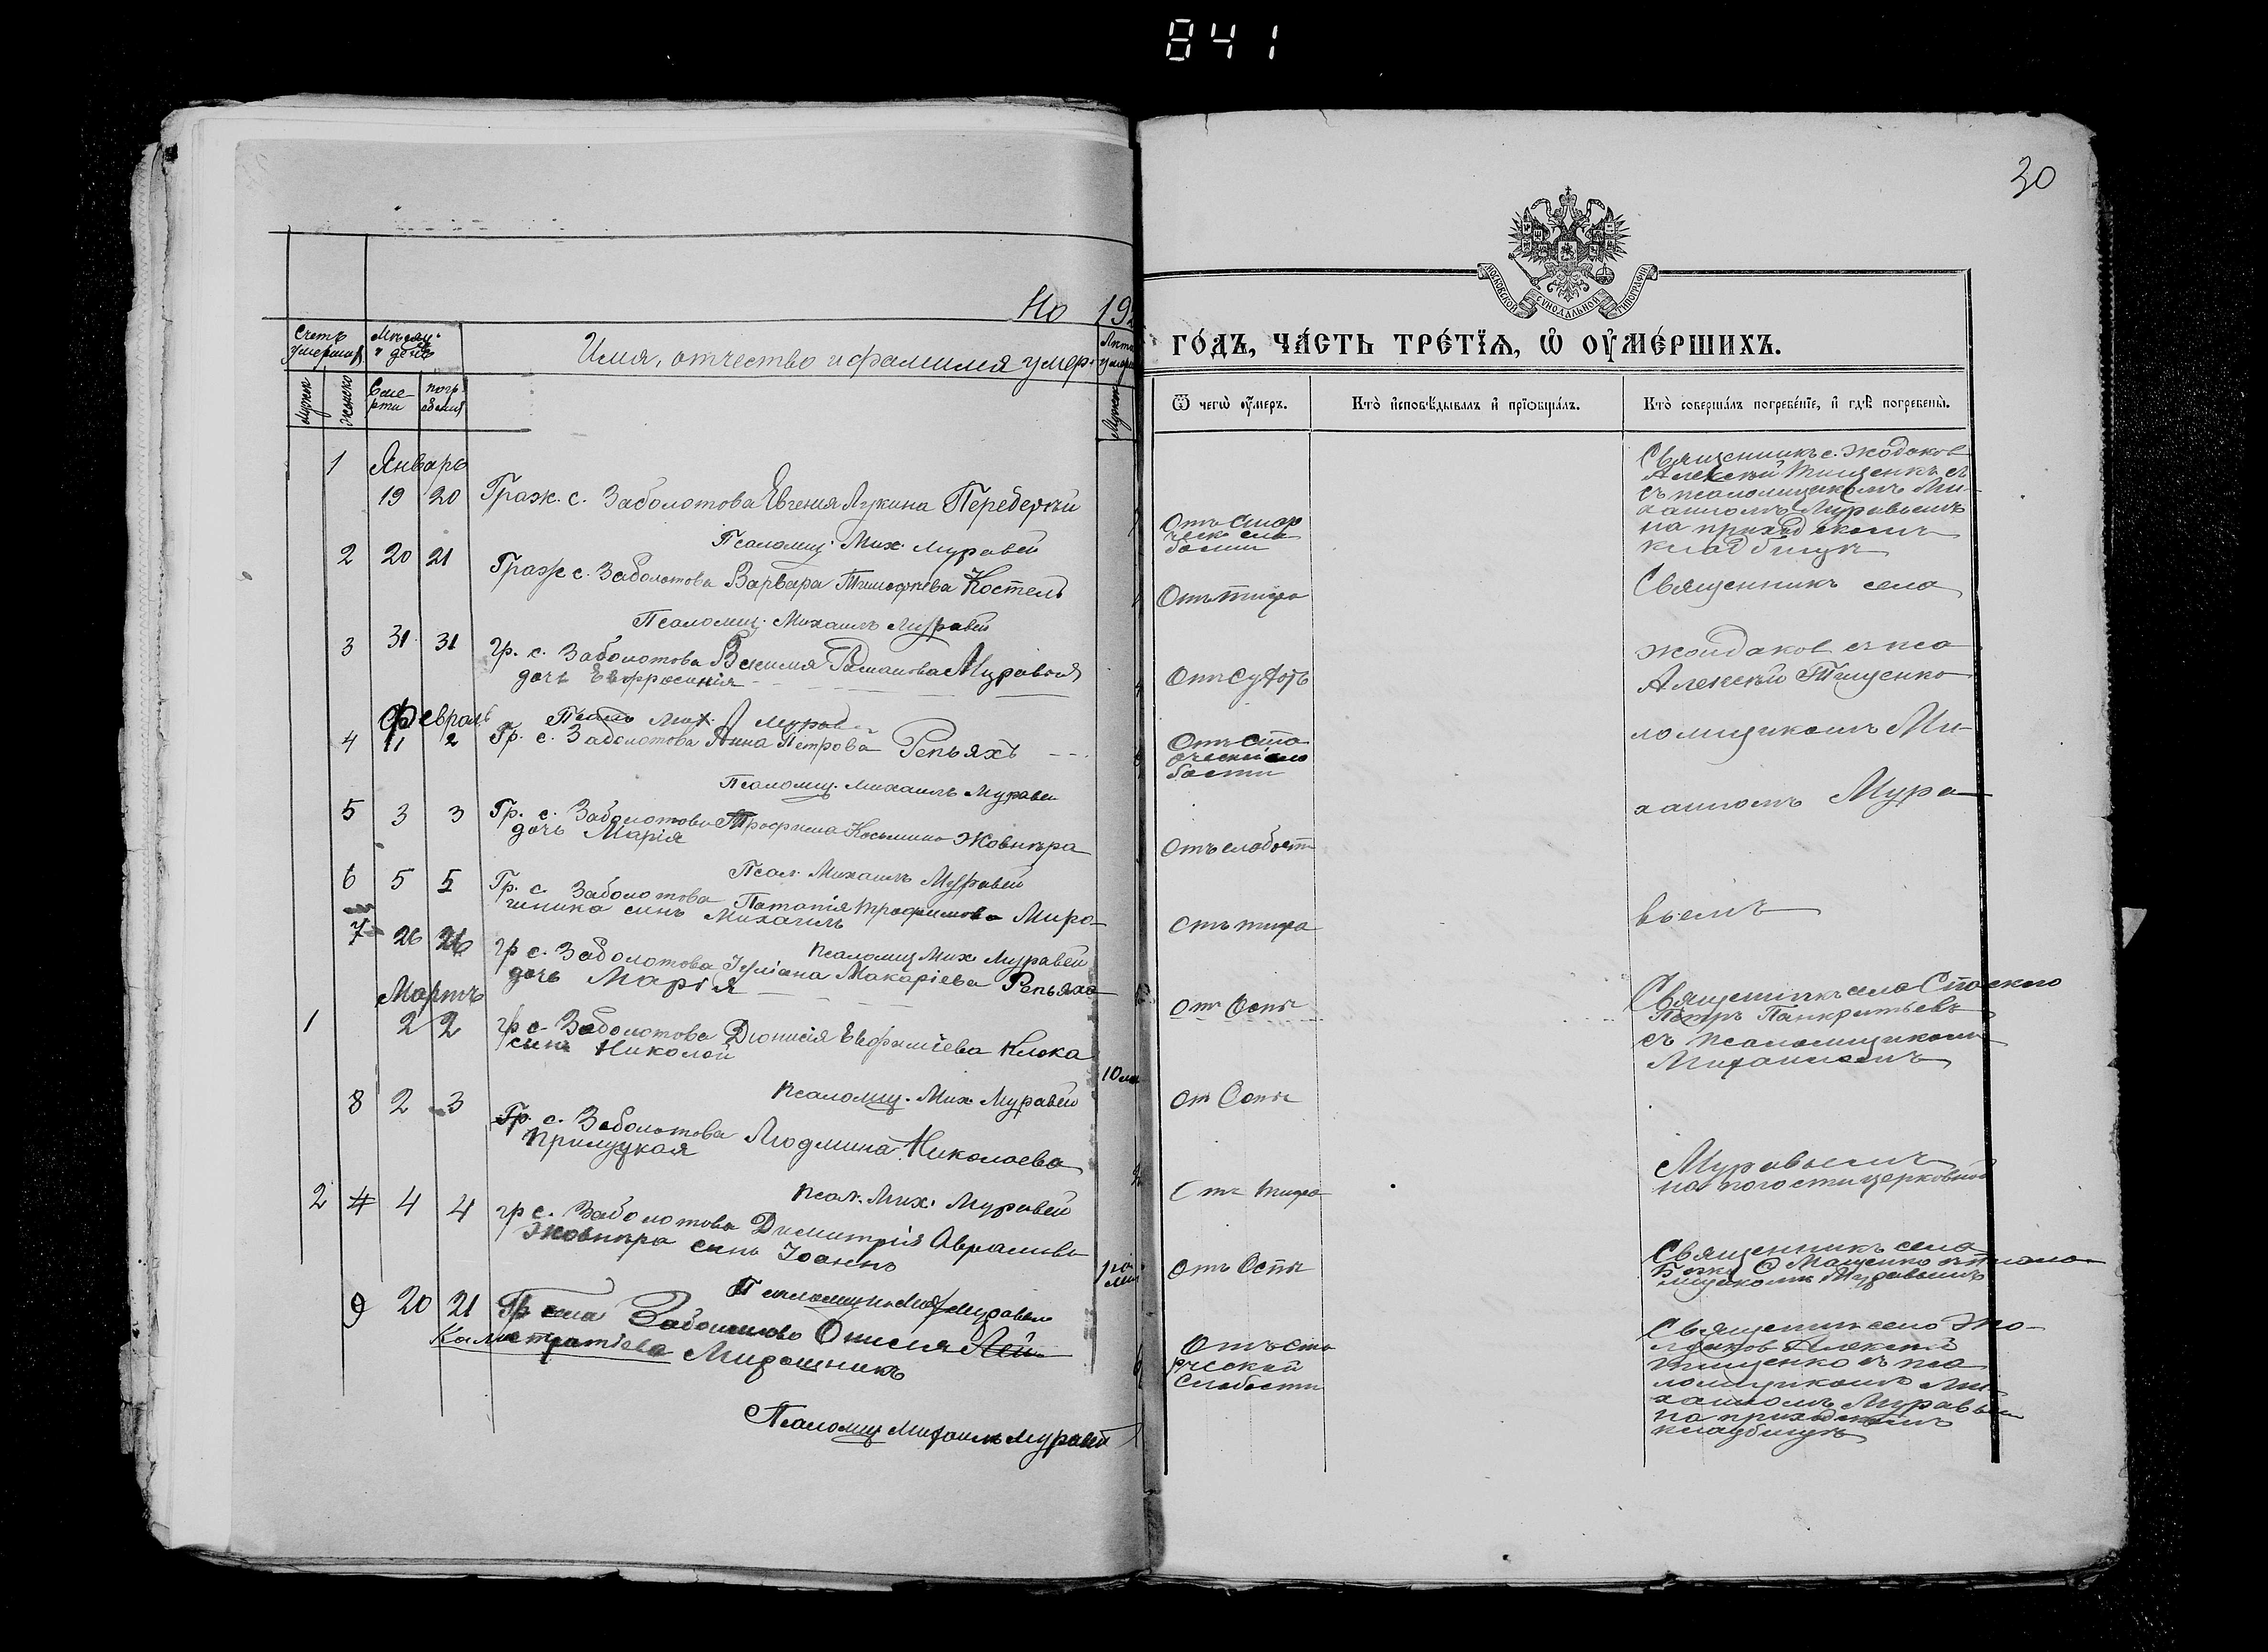 841
30
МОСКОВСКОЙ СѴНОДАЛЬНОЙ ТИПОГРАФІИ
На 19
го́дъ, ча́сть тре́тїѧ, ѽ оу҆ме́ршихъ.
Счетъ умершихъ
Мѣсяц и день
Имя, отчество и фамилия умер.
Лѣта умерш
Мужск
Женско
Сме-
рти
погр
ебенія
Мужск
Ѿ чегѡ̀ оу҆́меръ.
Кто̀ и҆сповѣ́дывалъ и҆ прїѡбща́лъ.
Кто̀ соверша́лъ погребе́нїе, и҆ гдѣ̀ погребены̀.
1 Январь
19 20 Граж. с. Заболотова Евгения Лукина Передерій
Отъ стар
ческ сла
бости
Священникъ с. Жодаков
Алексѣй Тищенкъ съ
съ псаломщикомъ Ми-
хаиломъ Муравьемъ
на приходскомъ
кладбищѣ
Псаломщ. Мих. Муравей
2 20 21 Граж с. Заболотова Варвара Тимофеѣва Костель
Отъ тифа
Священникъ села
Псаломщ. Михаилъ Муравей
3 31 31 гр. с. Заболотова Романова Муравья
дочь Евфросинія
жолдаков съ пса
Алексѣй Тищенко
Февраль
Псало Мих. Мурав
4 11 2 Гр. с. Заболотова Анна Петрова Репьяхъ
Отъ ста
рческій сла
бости
ломщикомъ Ми-
Псаломщ. Михаилъ Муравей
5 3 3 Гр. с. Заболотова Трофима Косьмина Жовнѣра
дочь Марія
Отъ слабости
хаиломъ Мура
Псал. Михаилъ Муравей
6 5 5 Гр. с. Заболотова Потапія Трофимова Миро-
шника сынъ Михаилъ
Отъ тифа
вьемъ
Псаломщ Мих Муравей
7 26 26 гр с. Заболотова Іуліана Макаріева Репьяха
дочь Марія
От Оспы
Священникъ села Спаского
Петръ Панкратьевъ
съ псаломщикомъ
Михаиломъ
Мартъ
1 2 2 гр с. Заболотова Діонисія Евфиміева Клюка
сынъ Николай
10
От Оспы
Псаломщ. Мих Муравей
8 2 3 Гр. с. Заболотова Людмила Николаева
Прилуцкая
Отъ тифа
Муравьемъ
на погости церковной
Псал. Мих. Муравей
2 4 4 гр с. Заболотова Димитрія Аврамова
Жовнѣра сынъ Іоаннъ
Отъ Оспы
Священникъ села
Мащенко
мщикомъ Муравьемъ
Псаломщикъ Мих Муравей
9 20 21 Гр села Заболотова Онисія
Калистратіева Мирошникъ
Отъ ста
рческой
слабости
Священник села Жо-
лдаков Алексѣй
Тищенко съ пса
ломщикомъ Ми-
хаиломъ Муравьем
на приходскомъ
кладбищѣ
Псаломщ Михаилъ Муравей